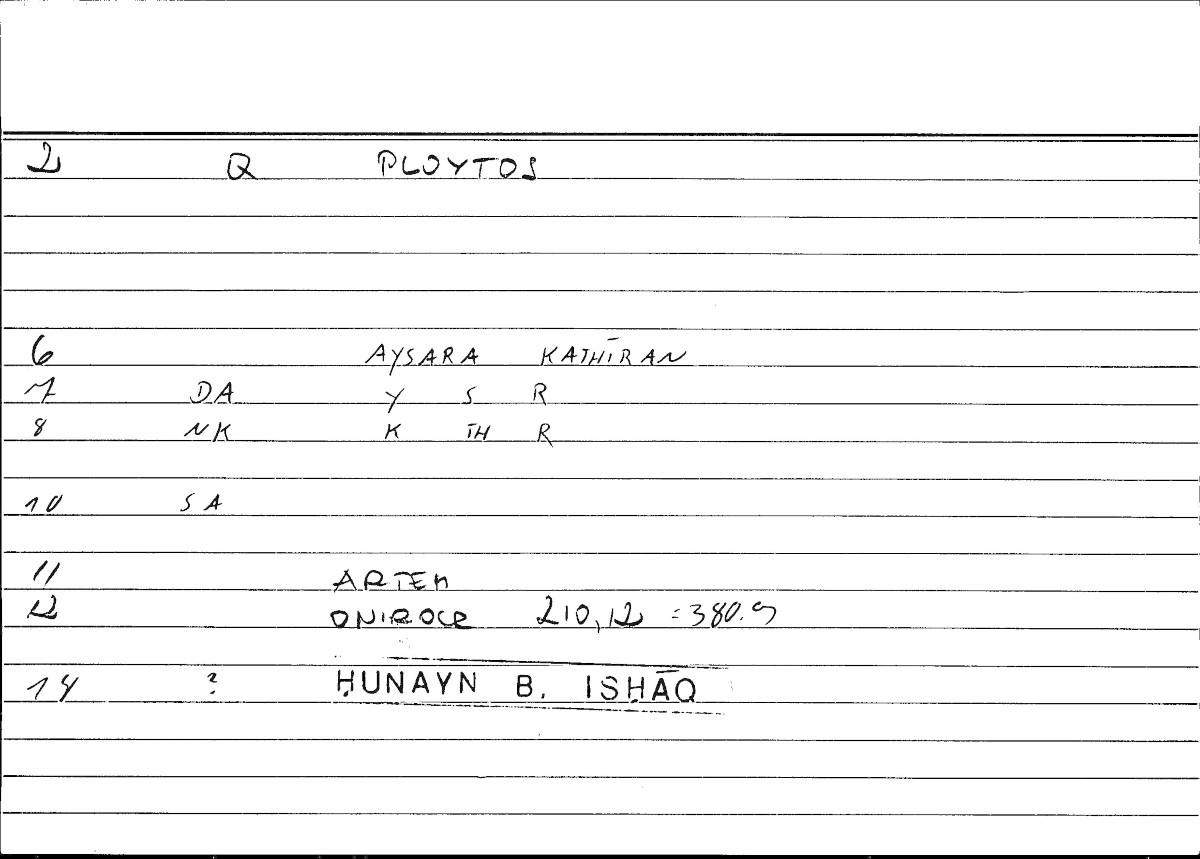 2 Q PLOYTOS
6 AYSARA KATHĪRAN
7 DA Y S R
8 NK K TH R
10 SA
11 ARTEM
12 ONIROCR 210,12 = 380.9
14 ? ḤUNAYN B. ISḤĀQ